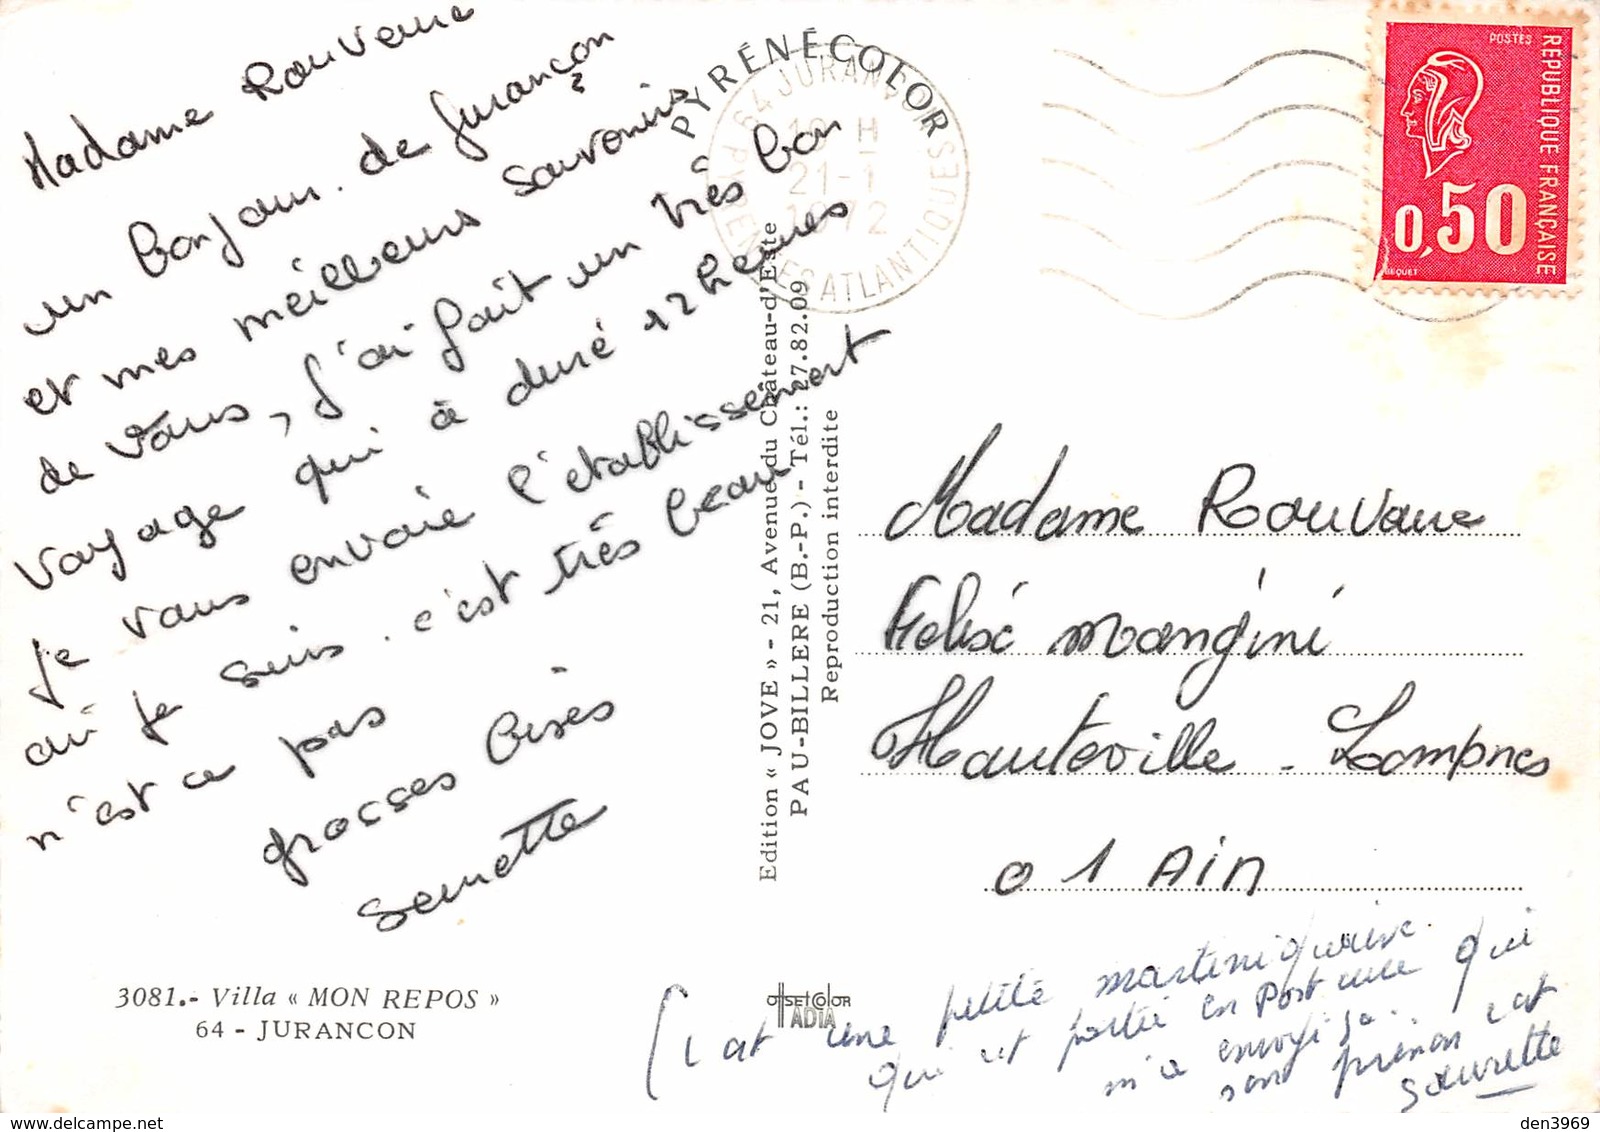 Madame Rouveure
un bonjour. de Jurançon
et mes meilleurs souvenirs
de vous, j'ai fait un très bon
voyage qui à duré 12 heures
je vous envoie l'établissement
où je suis. c'est très beau
n'est ce pas
grosses bisès
seurette
3081.- Villa « MON REPOS »
64 - JURANCON
PYRÉNÉCOLOR
Edition « JOVE » - 21, Avenue du Château-d'Este
PAU-BILLERE (B.-P.) - Tél.: 27.82.09
Reproduction interdite
OFFSET COLOR
ADIA
64 JURANÇON
10 H
21-1
1972
PYRENEES ATLANTIQUES
POSTES
REPUBLIQUE FRANÇAISE
0,50
BEQUET
Madame Rouveure
Félisé mangini
Hauteville - Lompnes
01 Ain
(c est une petite martiniquaise
qui est partie en Post cure qui
m'a envoyé sa..
son prénom est
seurette
den3969